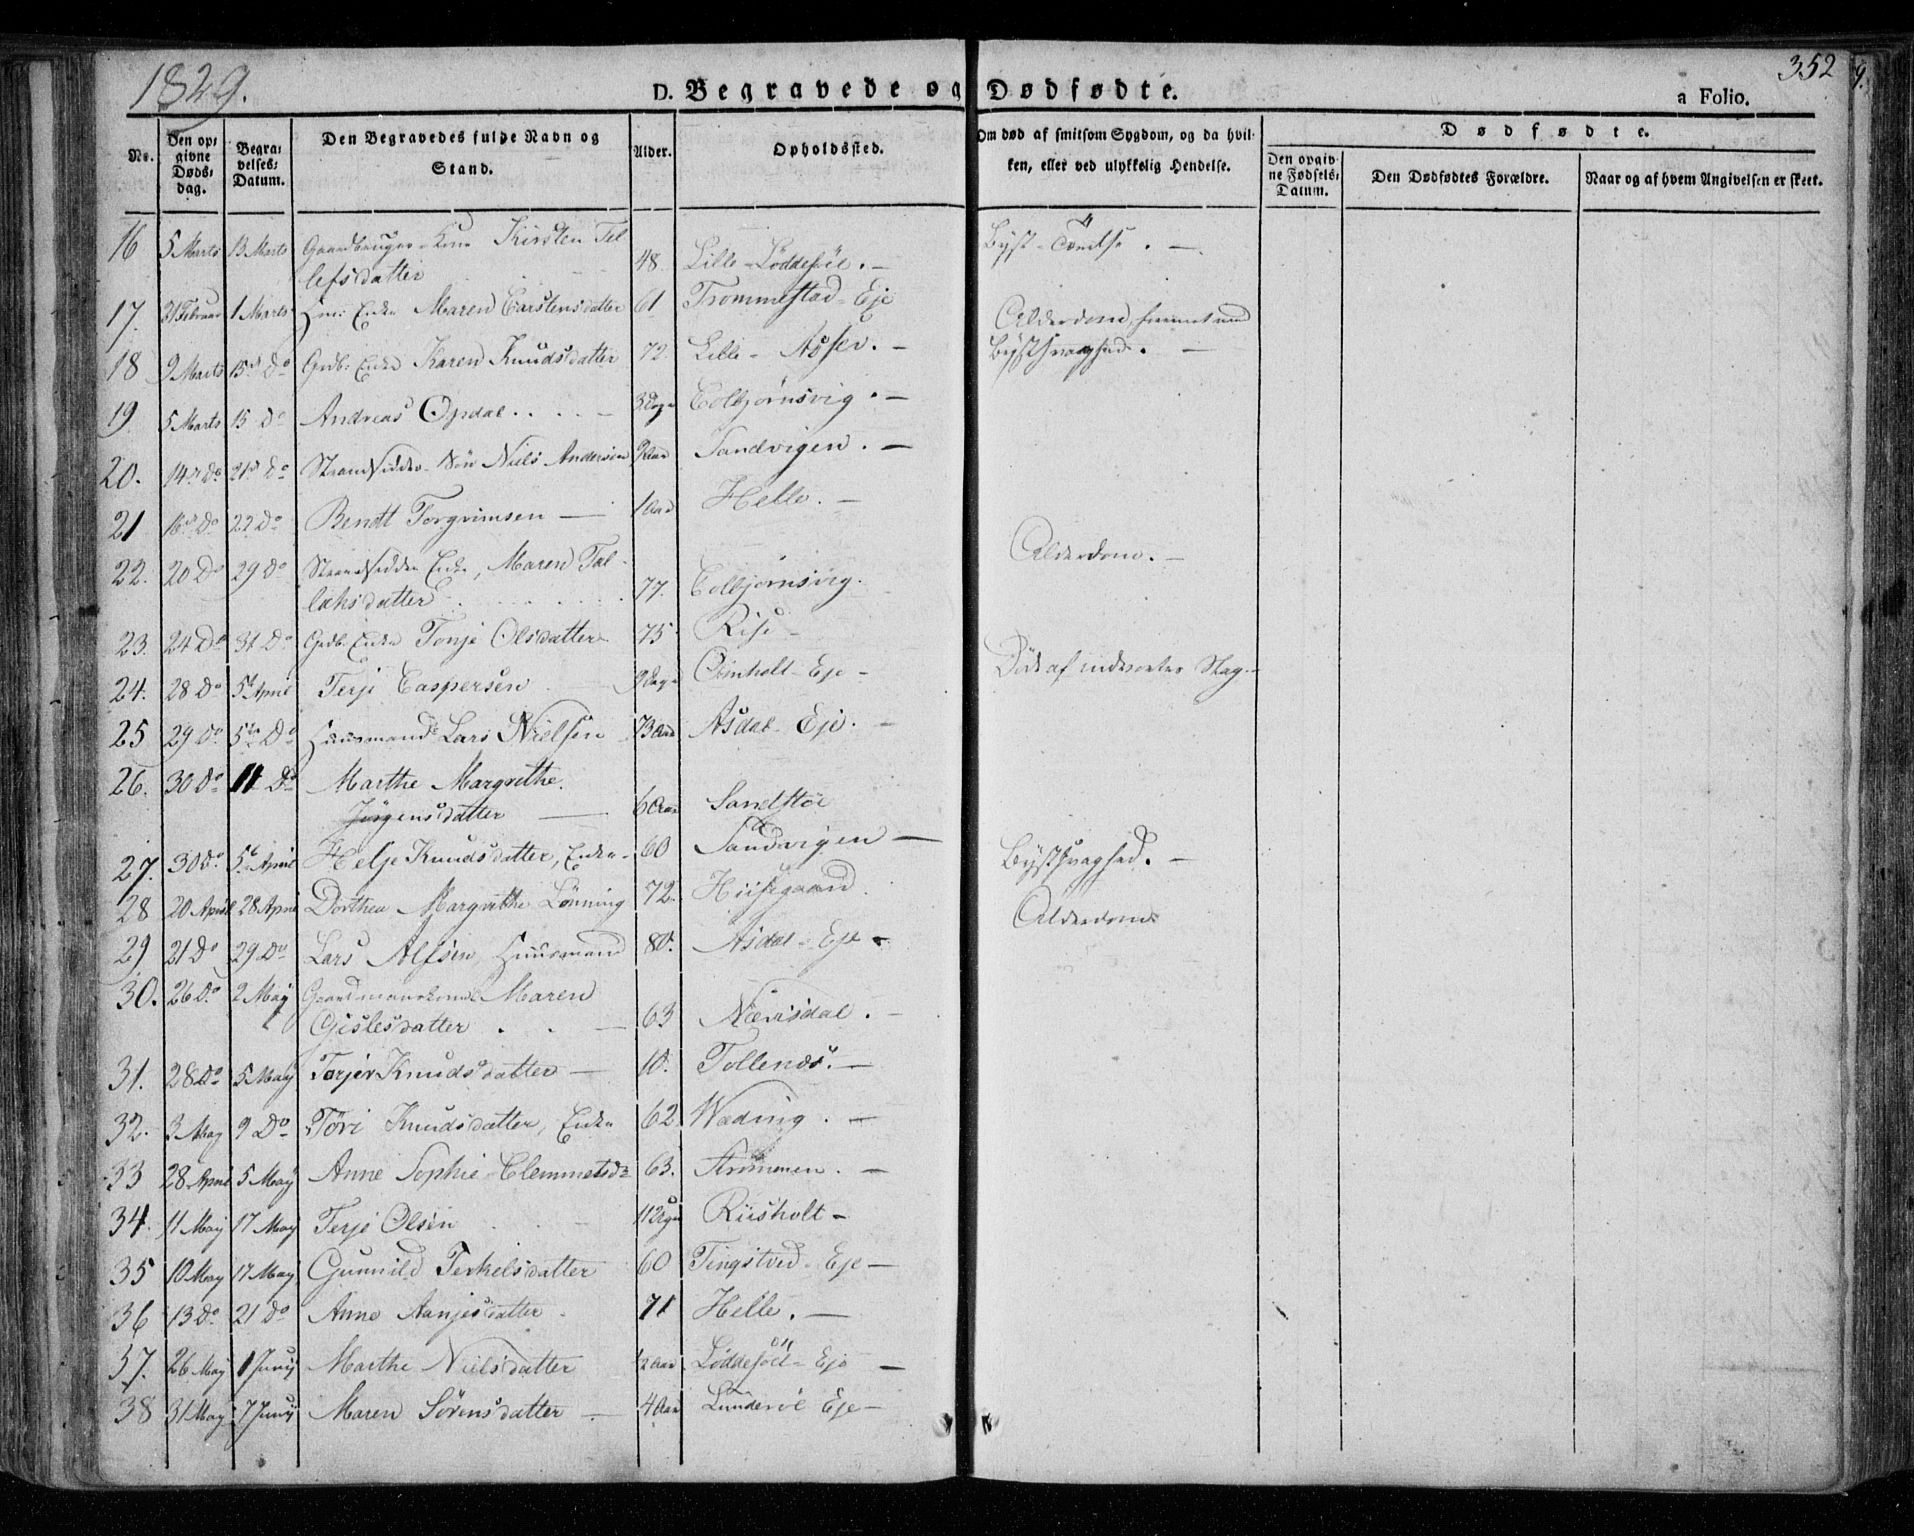 1829.
D. Begravede og Dødfødte.
352
a Folio.
No.
Den opgivne Døds-dag.
Begravelses-Datum.
Den Begravedes fulde Navn og Stand.
Alder.
Opholdssted.
Om død af smitsom Sygdom, og da hvilken, eller ved ulykkelig Hendelse.
Dødfødte.
Den opgivne Fødsels-Datum.
Den Dødfødtes Forældre.
Naar og af hvem Angivelsen er skeet.
16 5 Marts 13 Marts Gaardbruger-Kone Kirsten Tel
lefsdatter 48. Lille-Løddesøl.
17. 21 Februar 1 Marts Enke Maren Carstensdatter 61 Trommestad-Eje Alderdom,
18 9 Marts 15 Do Gdb. Enke Karen Knudsdatter 72. Lille-Assev. Brystsvaghed.
19 5 Marts 15 Do Andreas Opdal 3 Dage Colbjørnsvig.
20. 14 Do 21 Do Strandsidder-Søn Niels Andersen Aar Sandvigen.
21 16 Do 22 Do Bendt Torgrimsen 1 Aar Helle.
22. 20 Do 29 Do Strandsidder Enke, Maren Tal
laksdatter 77. Colbjørnsvig. Alderdom.
23. 24 Do 31 Do Gdb. Enke Tonje Olsdatter 75 Rise
24. 28 Do 5 April Terje Caspersen 9 Dage Eje Død af indvortes Slag.
25 29 Do 5 Do Huusmand Lars Nielsen 73 Aar Asdal-Eje.
26. 30 Do 11 Do Marthe Margrethe
Jørgensdatter 60 Aar Sandstøe
27. 30 Do 5 April Helje Knudsdatter, Enke 60 Sandvigen Brystsvaghed.
28 20 April 28 April Dorthea Margrethe Lønning 72. Hiisegaard. Alderdom
29 21 Do 29 Do Lars Alfsen, Huusmand 80. Asdal-Eje
30. 26 Do 2 May Gaardmandskone Maren
Gislesdatter 63 Nævisdal.
31. 28 Do 5 May Torjer Knudsdatter 10. Tollenæs.
32. 3 May 9 Do Tøri Knudsdatter, Enke 62 Wæding.
33 28 April 5 May Anne Sophie Clemmetsd 63. Strømmen.
34. 11 May 17 May Terje Olsen 11 Riisholt
35 10 May 17 May Gunnild Terkelsdatter 60 Tingstved-Eje
36 13 Do 21 Do Anne Aanjesdatter 71 Helle.
37. 26 May 1 Juny Marthe Nielsdatter 1/2 Aar Løddesøel-Eje
38 31 May 7 Juny Maren Sørensdatter 4 Aar Lunderøe Eje